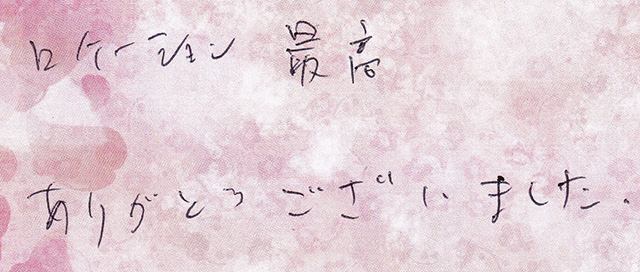 ロケーション 最高
ありがとうございました.